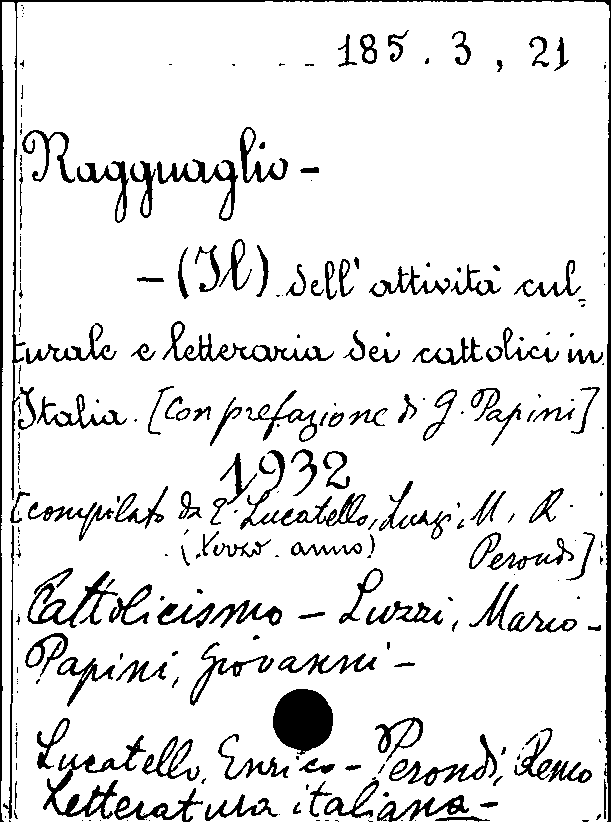 185.3, 21
Ragguaglio -
- (Il) dell'attività cul=
turale e letteraria dei cattolici in
Italia. [Con prefazione di G. Papini]
1932
[compilato da E. Lucatello, Luzzi, M, R.
(Terzo anno) Perondi]
Cattolicismo - Luzzi, Mario -
Papini, Giovanni -
Lucatello, Enrico - Perondi, Remo
Letteratura italiana -